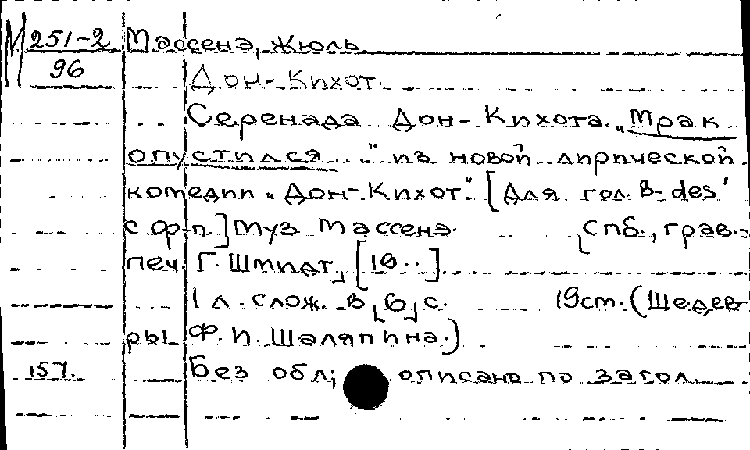 М 251-2 Массенэ, Жюль
96 Дон-Кихот.
Серенада Дон-Кихота „Мрак
опустился..." из новой лирической
комедии „Дон-Кихот" [Для гол. B-des'
с ф-п.] Муз. Массенэ. Спб., грав.-
печ. Г. Шмидт, [19..].
1 л. слож. в [6] с. 19см. (Шедев
ры Ф. И. Шаляпина.)
157. Без обл; описано по загол